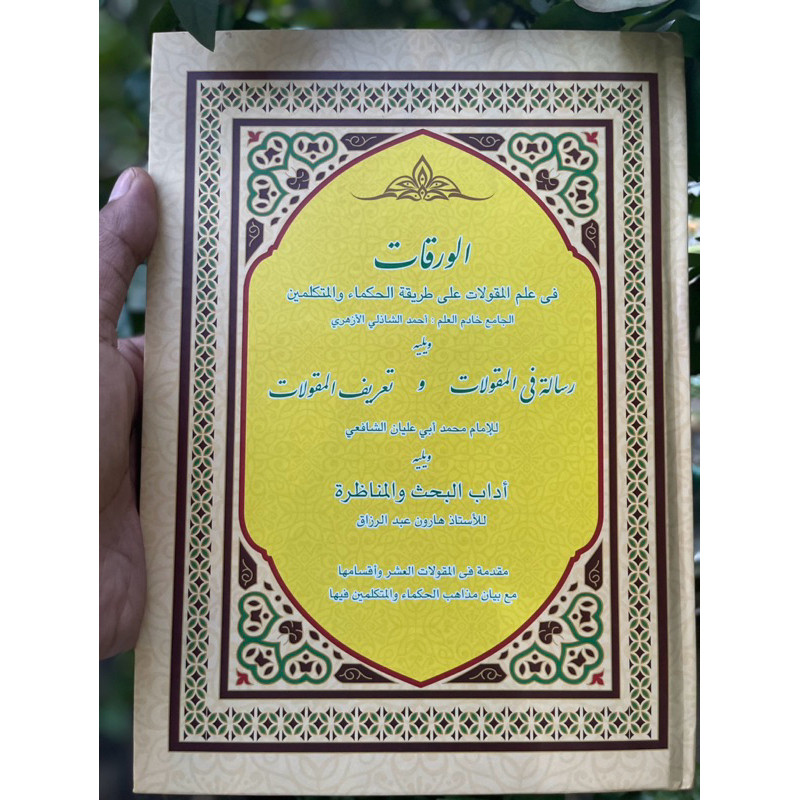 الورقات
فى علم المقولات على طريقة الحكماء والمتكلمين
الجامع خادم العلم : أحمد الشاذلي الأزهري
ويليه
رسالة فى المقولات و تعريف المقولات
للإمام محمد أبي عليان الشافعي
ويليه
أداب البحث والمناظرة
للأستاذ هارون عبد الرزاق
مقدمة فى المقولات العشر وأقسامها
مع بيان مذاهب الحكماء والمتكلمين فيها